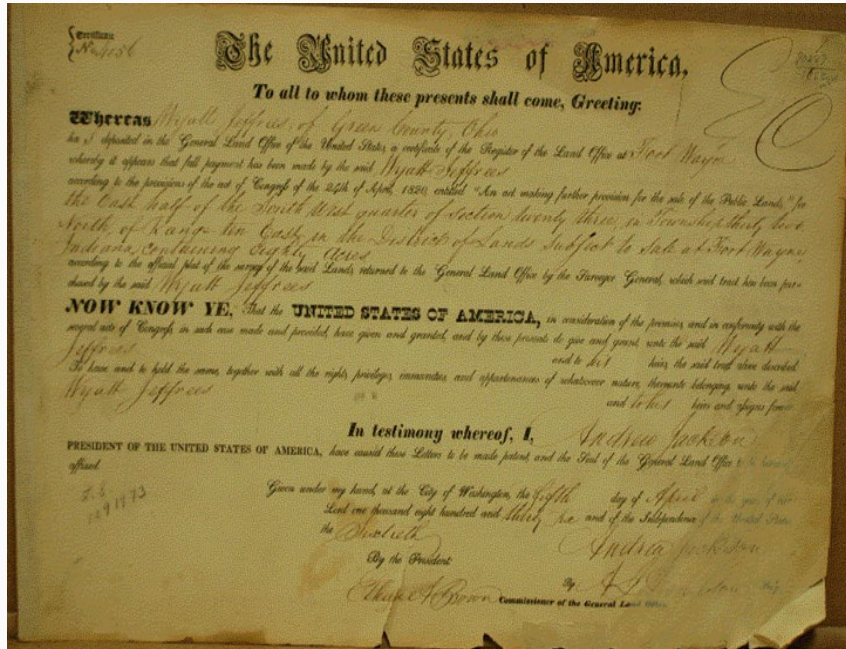 The United States of America,
To all to whom these presents shall come, Greeting:
Whereas Wyatt Jeffrees, of Green County, Ohio
ha deposited in the General Land Office of the United States, a certificate of the Register of the Land Office at Fort Wayne
whereby it appears that full payment has been made by the said Wyatt Jeffrees
according to the provisions of the act of Congress of the 24th of April, 1820, entitled "An act making further provision for the sale of the Public Lands," for
the East half of the South West quarter of section twenty three, in Township thirty two
North, of Range ten East, in the District of Lands Subject to Sale at Fort Wayne,
Indiana, containing Eighty Acres
according to the official plat of the survey of the said Lands, returned to the General Land Office by the Surveyor General, which said tract has been pur-
chased by the said Wyatt Jeffrees
NOW KNOW YE, That the UNITED STATES OF AMERICA, in consideration of the premises, and in conformity with the
several acts of Congress, in such case made and provided, have given and granted, and by these presents do give and grant, unto the said Wyatt
Jeffrees and to his heirs, the said tract above described:
To have and to hold the same, together with all the rights, privileges, immunities, and appurtenances of whatsoever nature, thereunto belonging, unto the said
Wyatt Jeffrees and to his heirs and assigns forever.
In testimony whereof, I, Andrew Jackson
PRESIDENT OF THE UNITED STATES OF AMERICA, have caused these Letters to be made patent, and the Seal of the General Land Office to be hereunto
affixed.
Given under my hand, at the City of Washington, the fifth day of April in the year of our
Lord one thousand eight hundred and thirty and of the Independence of the United States
the Sixtieth
Andrew Jackson
By the President:
By
Brown Commissioner of the General Land Office.